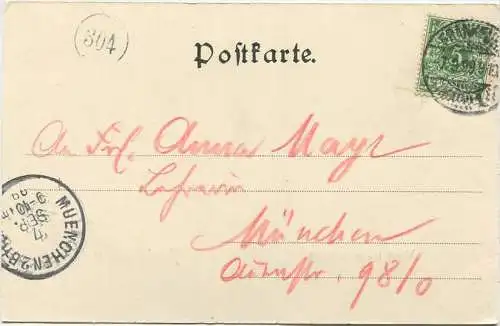 304
Postkarte.
An Frl. Anna Mayr
Lehrerin
München
98/0
MUENCHEN 2.B.
SEP.
9-10
99